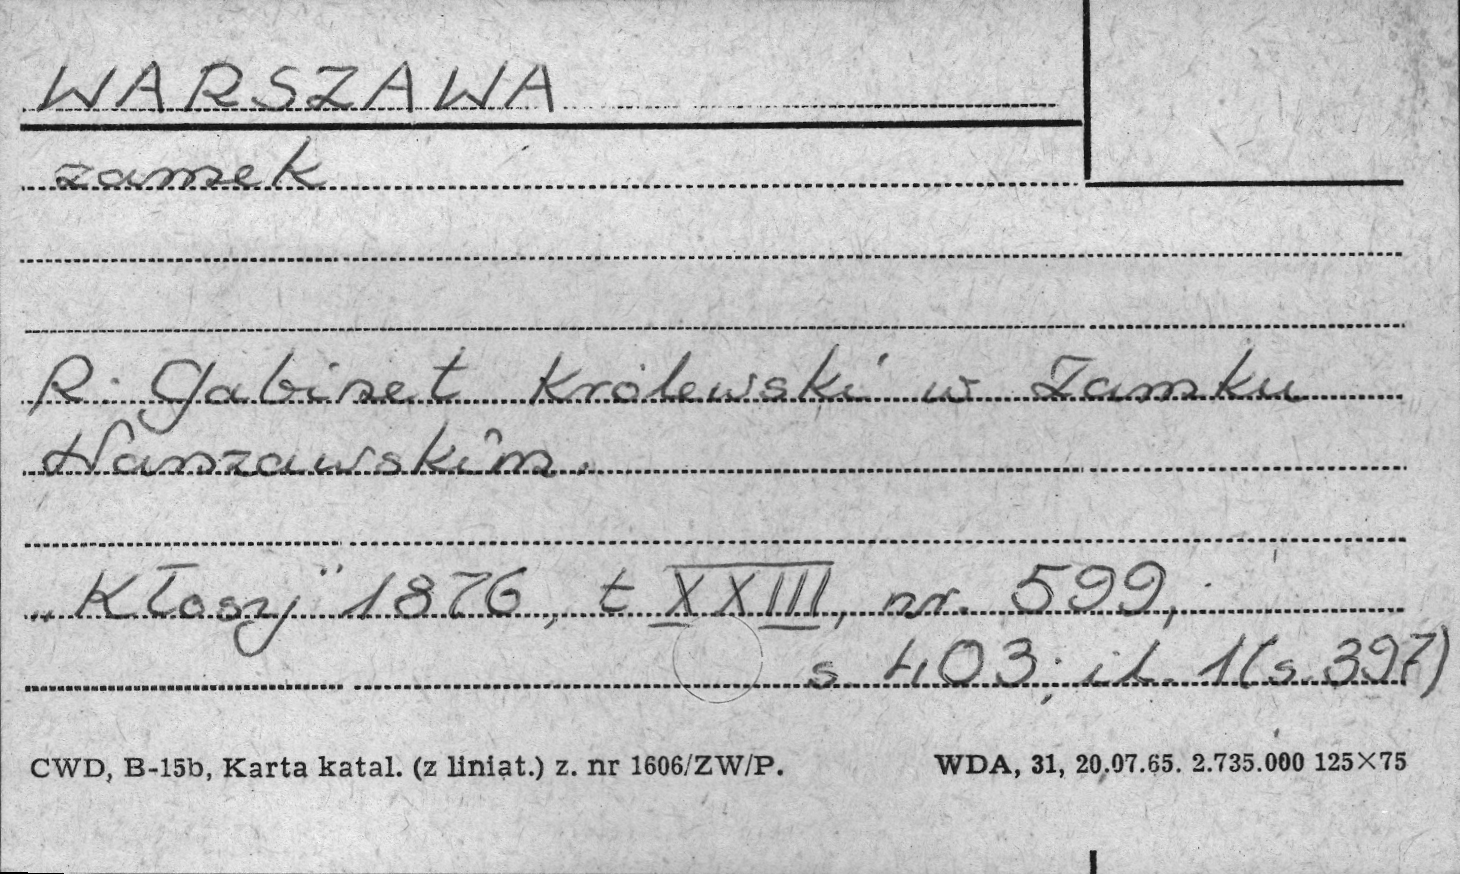 WARSZAWA
zamek
R. Gabinet Królewski w Zamku
Warszawskim.
„Kłosy" 1876, t XXIII, nr. 599,
s 403; il. 1(s. 397)
CWD, B-15b, Karta katal. (z liniat.) z. nr 1606/ZW/P. WDA, 31, 20.07.65. 2.735.000 125×75